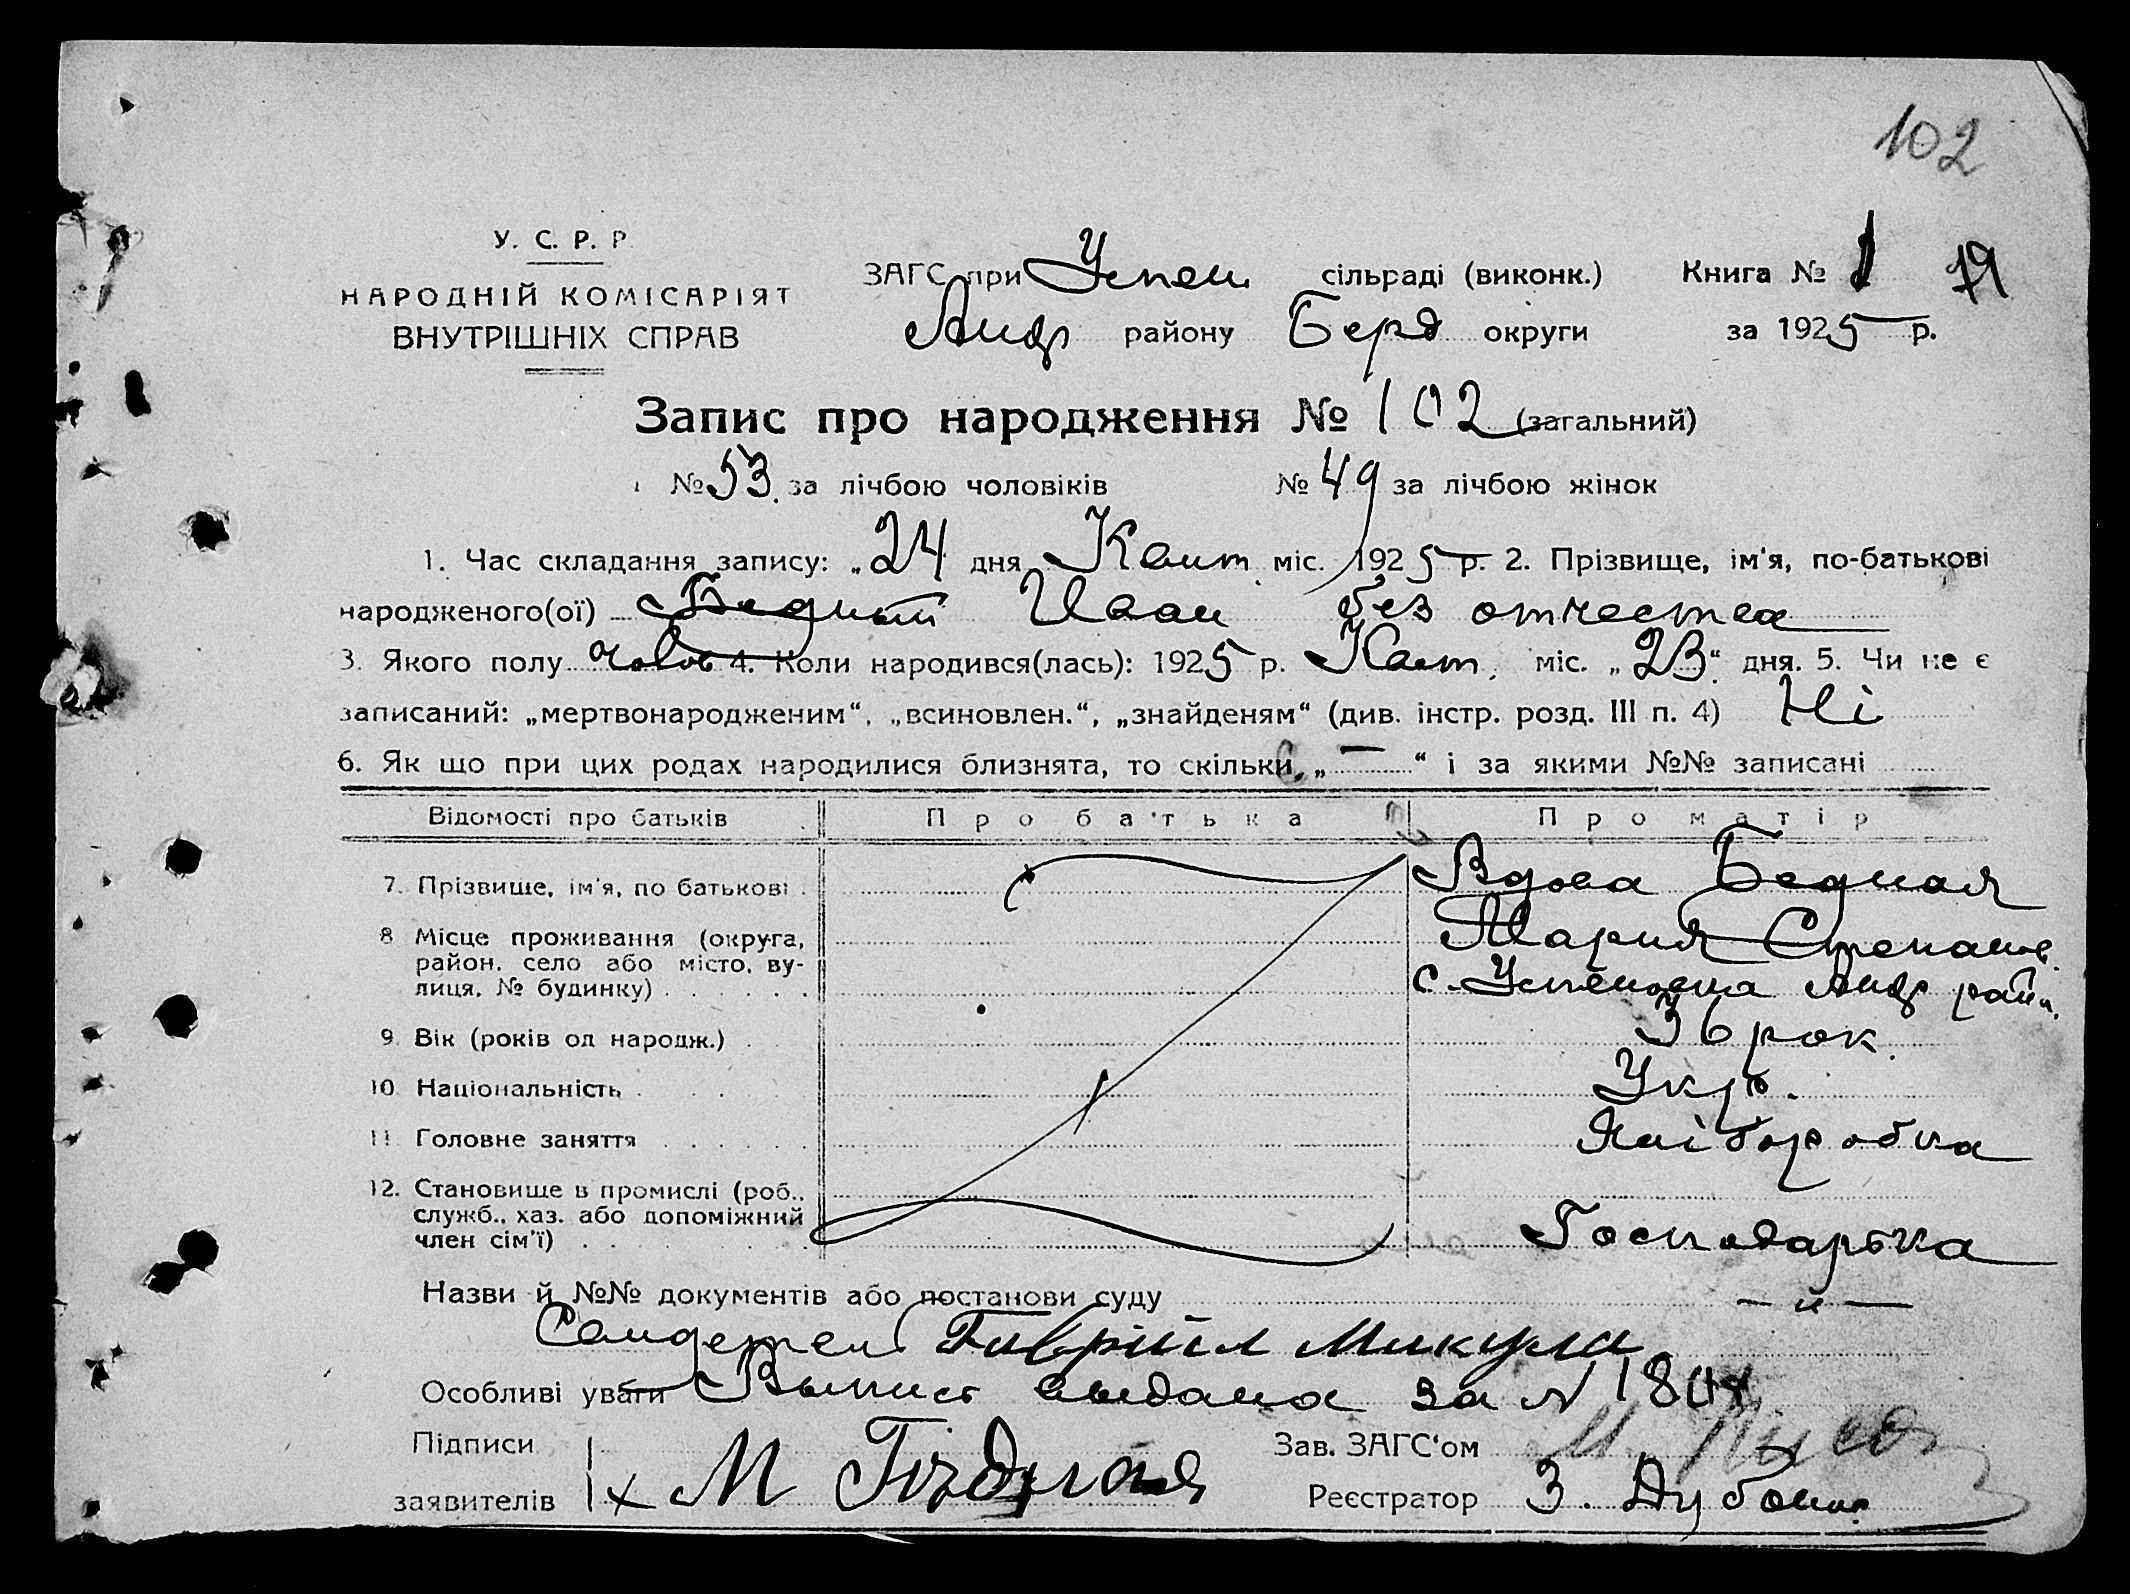 102
У. С. Р. Р.
НАРОДНІЙ КОМІСАРІЯТ
ВНУТРІШНІХ СПРАВ
ЗАГС при Успен. сільраді (виконк.) Книга № 1
Андр району Берд округи за 1925 р.
Запис про народження № 102 (загальний)
№ 53 за лічбою чоловіків № 49 за лічбою жінок
1. Час складання запису: „24 дня Квит. міс. 1925 р. 2. Прізвище, ім'я, по-батькові
народженого(ої) Бедный Иван без отчества
3. Якого полу чолов 4. Коли народився(лась): 1925 р. Квіт. міс. „23“ дня. 5. Чи не є
записаний: „мертвонародженим“, „всиновлен.“, „знайденям“ (див. інстр. розд. III п. 4) Ні
6. Як що при цих родах народилися близнята, то скільки „—“ і за якими №№ записані
Відомості про батьків Про батька Про матір
7. Прізвище, ім'я, по батькові Вдова Бедная
Мария Степанов.
8 Місце проживання (округа,
район, село або місто, ву-
лиця, № будинку) с. Успеновка Андр райн.
9 Вік (років од народж.) 36 рок.
10 Національність Укр.
11 Головне заняття Хліборобка
12. Становище в промислі (роб.,
служб., хаз. або допоміжний
член сім'ї) Господарька
Назви й №№ документів або постанови суду — „ —
Свидетел Гаврііл Микула
Особливі уваги Выпись выдана за №
Підписи
заявителів х М Бідная
Зав. ЗАГС‘ом М.
Реєстратор З.